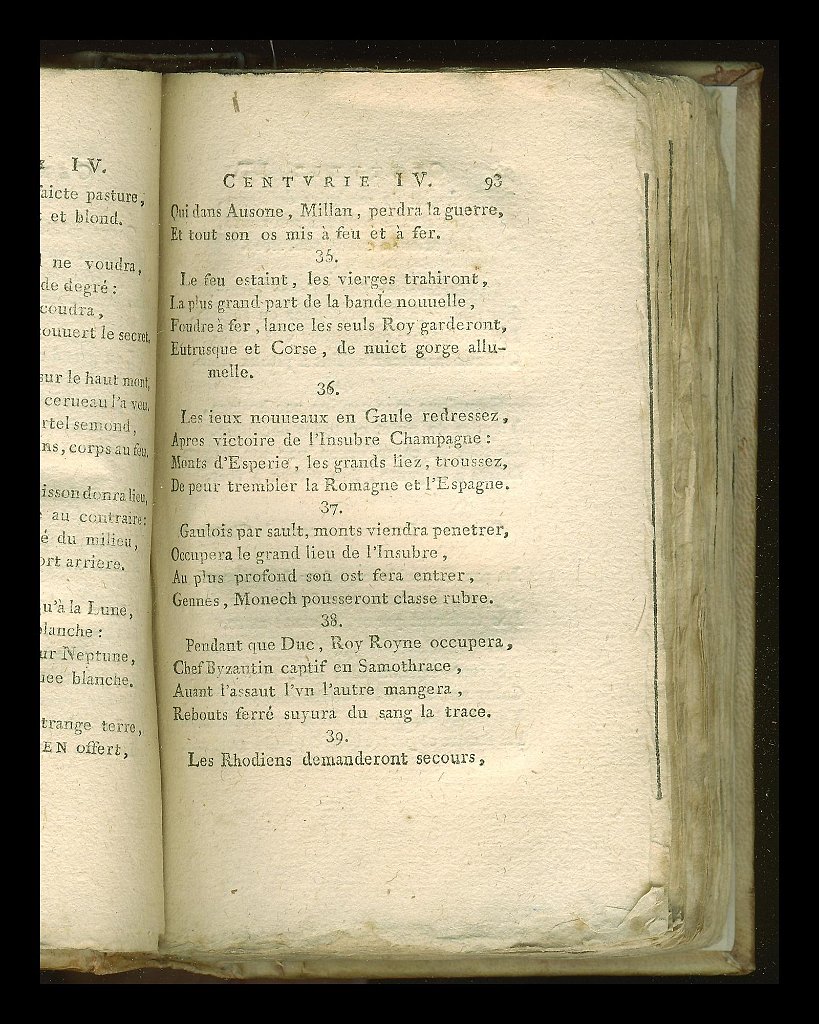 IV.
aicte pasture,
et blond.
ne voudra,
de degré :
coudra,
ouuert le secret,
sur le haut mont,
cerueau l'a veu,
rtel semond,
ns, corps au feu,
isson donra lieu,
au contraire:
é du milieu,
ort arriere.
u'à la Lune,
blanche :
ur Neptune,
uee blanche.
trange terre,
EN offert,
CENTVRIE IV. 93
Qui dans Ausone, Millan, perdra la guerre,
Et tout son os mis à feu et à fer.
35.
Le feu estaint, les vierges trahiront,
La plus grand part de la bande nouuelle,
Foudre à fer, lance les seuls Roy garderont,
Eutrusque et Corse, de nuict gorge allu-
melle.
36.
Les ieux nouueaux en Gaule redressez,
Apres victoire de l'Insubre Champagne :
Monts d'Esperie, les grands liez, troussez,
De peur trembler la Romagne et l'Espagne.
37.
Gaulois par sault, monts viendra penetrer,
Occupera le grand lieu de l'Insubre,
Au plus profond son ost fera entrer,
Gennes, Monech pousseront classe rubre.
38.
Pendant que Duc, Roy Royne occupera,
Chef Byzantin captif en Samothrace,
Auant l'assaut l'vn l'autre mangera,
Rebouts ferré suyura du sang la trace.
39.
Les Rhodiens demanderont secours,